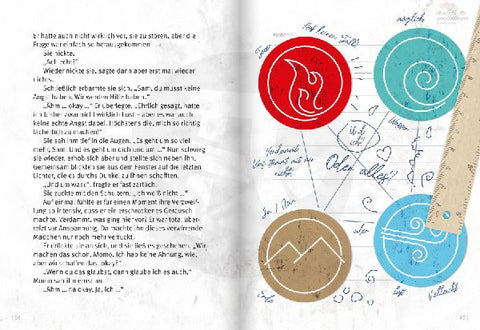 Er hatte auch nicht wirklich vor, sie zu stören, aber die
Frage war einfach so herausgekommen.
Sie nickte.
„Ach echt?“
Wieder nickte sie, sagte dann aber erst mal wieder
nichts.
Schließlich erbarmte sie sich. „Sam, du musst keine
Angst haben. Wir werden Hilfe haben.“
„Ähm … okay …“ Er überlegte. „Ehrlich gesagt, hatte
ich bisher zwar nicht wirklich Lust – aber es war auch
keine echte Angst dabei. Höchstens die, mich so richtig
lächerlich zu machen!“
Sie sah ihm tief in die Augen. „Es geht um so viel
mehr, Sam. Und es geht um dich und um …“ Nun schwieg
sie wieder, erhob sich aber und stellte sich neben ihn.
Gemeinsam blickten sie aus dem Fenster auf die letzten
Lichter, die es durchs Dunkel zu ihnen schafften.
„Und um was?“, fragte er fast zärtlich.
Sie zuckte mit den Schultern. „Ich weiß nicht …“
Auf einmal fühlte es für einen Moment ihre Verzweif-
lung so intensiv, dass er ein erschrockenes Geräusch
machte. Verdammt, was ging hier vor! Er war total über-
reizt vor Anspannung. Da machte ihn dieses verwirrende
Mädchen nur noch mehr verrückt.
Er drückte sie an sich, und sie ließ es geschehen. „Wir
machen das schon, Momo. Ich hab keine Ahnung, wie,
aber wir schaffen das, okay?“
„Wenn du das glaubst, dann glaube ich es auch.“
Momo sah ihn ernst an.
„Ähm … na okay. Ja, ich …“
Auf keinen Fall
möglich
Oder alles?
Ja / Nein
Luft
Vielleicht